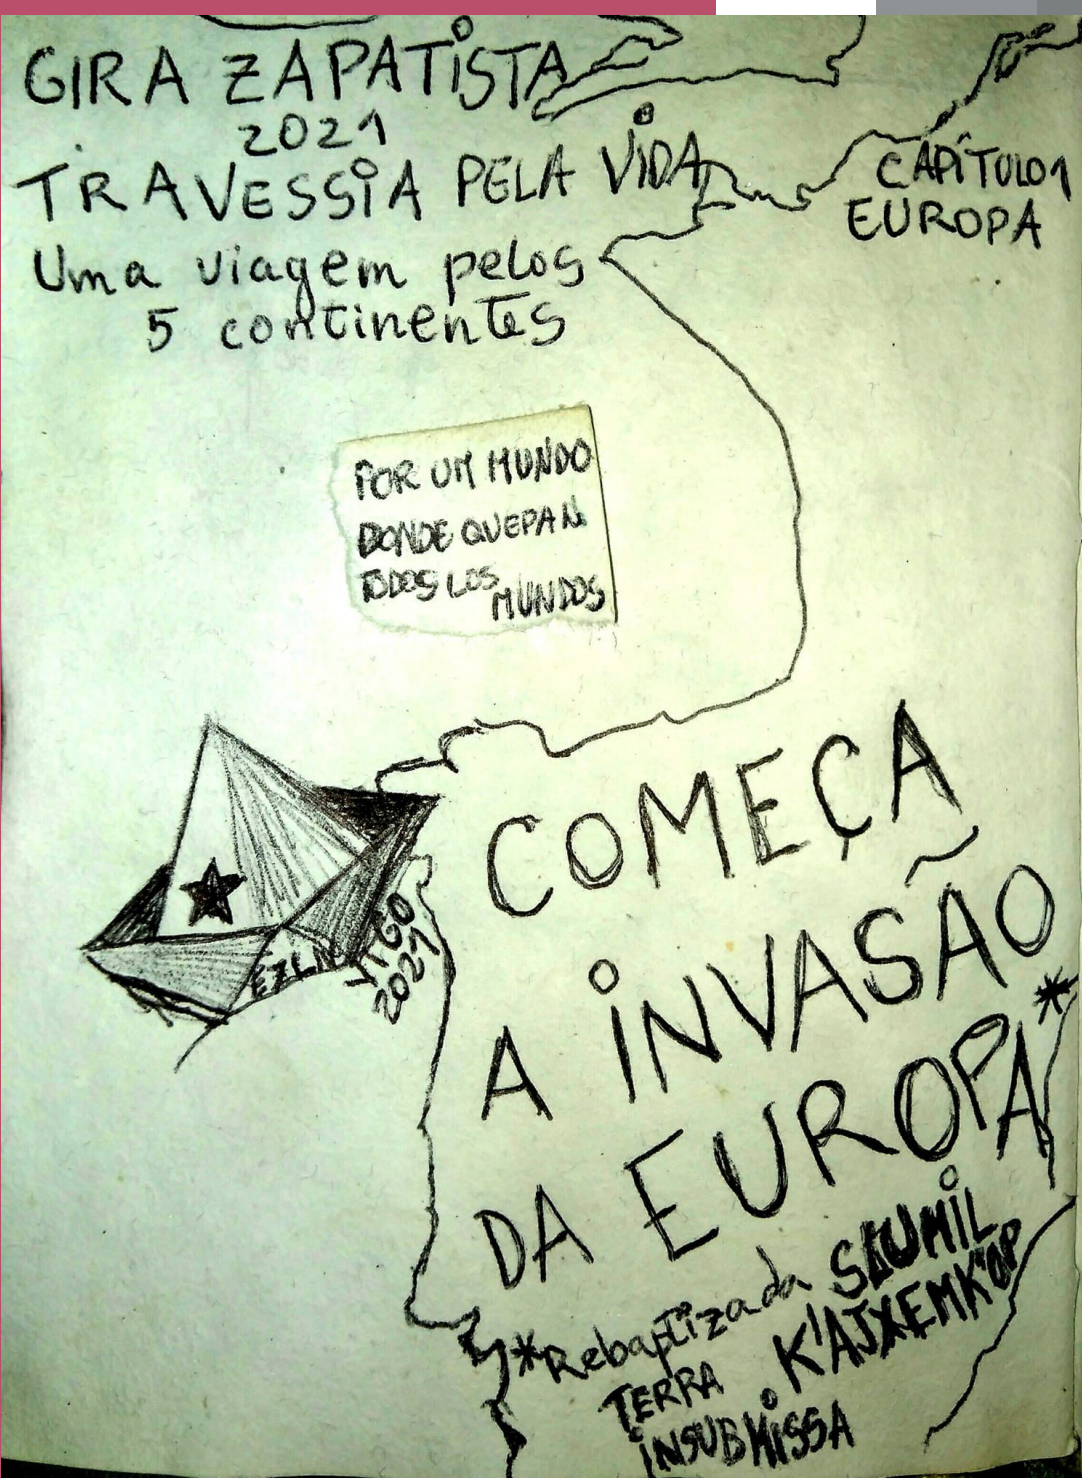 GIRA ZAPATISTA
2021
TRAVESSIA PELA VIDA
CAPÍTULO 1
EUROPA
Uma viagem pelos
5 continentes
POR UM MUNDO
DONDE QUEPAN
TODOS LOS
MUNDOS
EZLN
VIGO
2021
COMEÇA
A INVASÃO
DA EUROPA*
*Rebaptizada SLUMIL
K'AJXEMK'OP
TERRA
INSUBMISSA